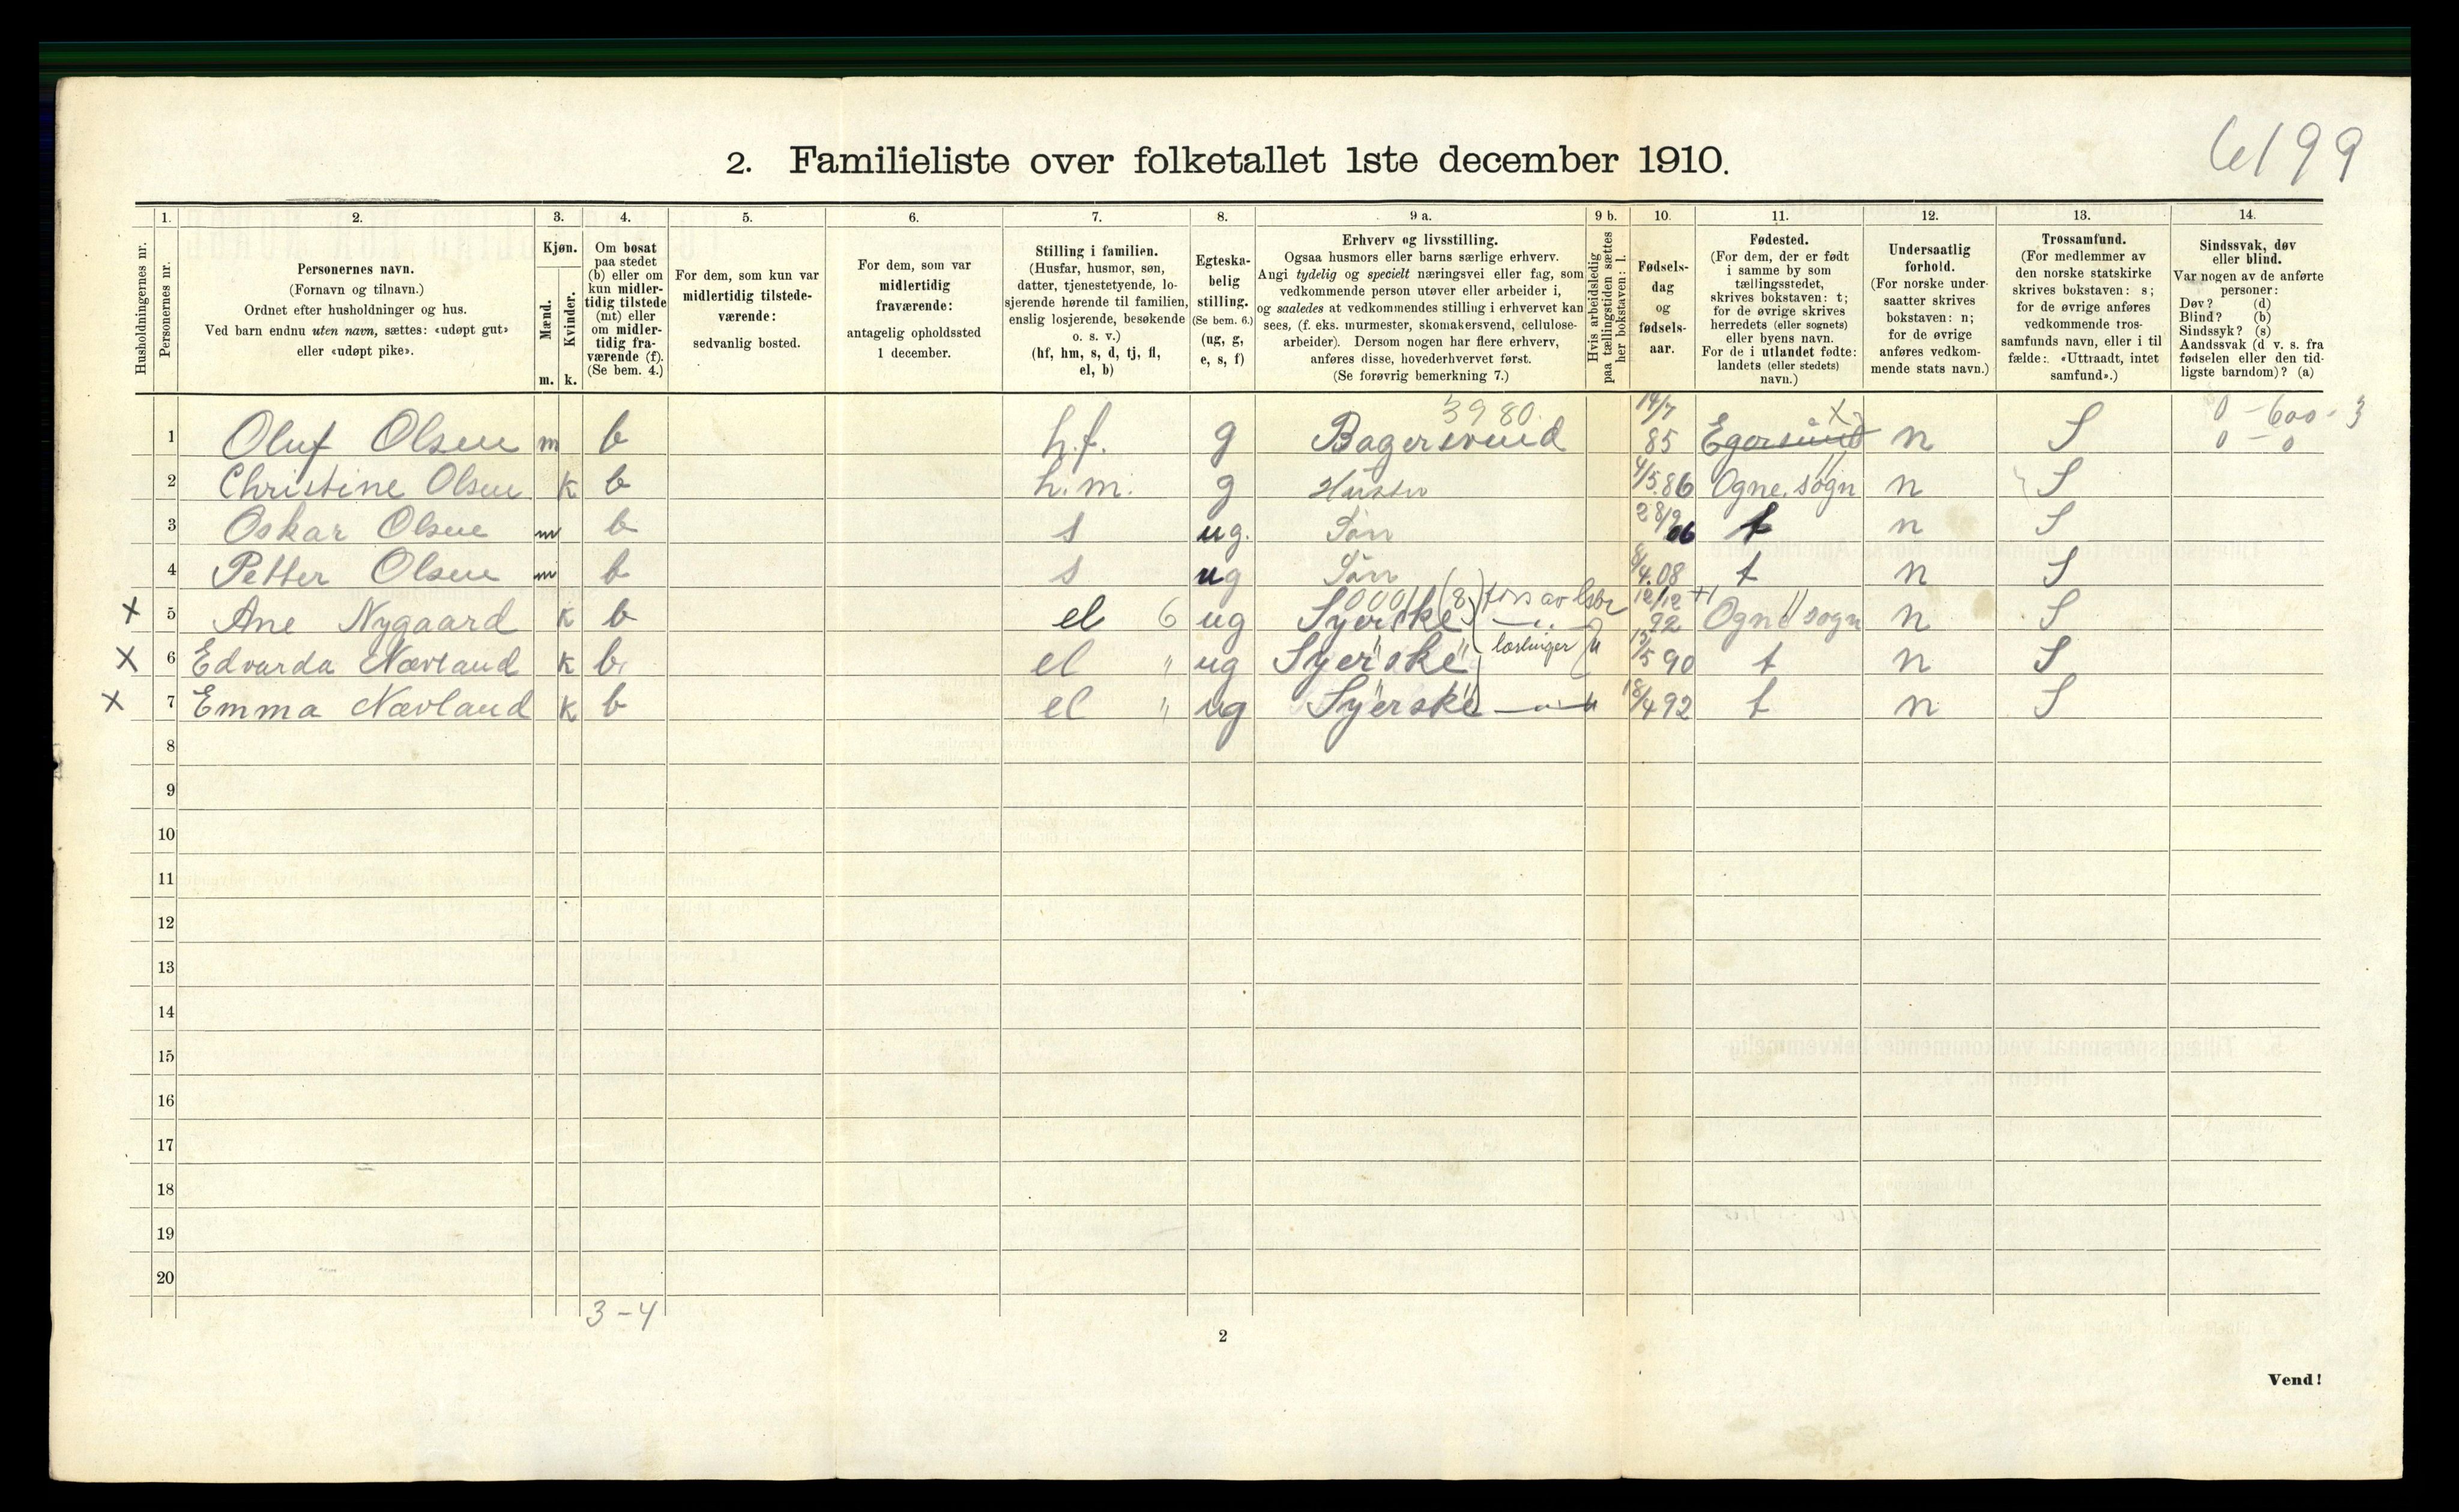 6199
2. Familieliste over folketallet 1ste december 1910.
1. 2. 3. 4. 5. 6. 7. 8. 9 a. 9 b. 10. 11. 12. 13. 14.
Husholdningernes nr.
Personernes nr.
Personernes navn.
(Fornavn og tilnavn.)
Ordnet efter husholdninger og hus.
Ved barn endnu uten navn, sættes: «udøpt gut»
eller «udøpt pike».
Kjøn.
Mænd.
Kvinder.
m. k.
Om bosat
paa stedet
(b) eller om
kun midler-
tidig tilstede
(mt) eller
om midler-
tidig fra-
værende (f).
(Se bem. 4.)
For dem, som kun var
midlertidig tilstede-
værende:
sedvanlig bosted.
For dem, som var
midlertidig
fraværende:
antagelig opholdssted
1 december.
Stilling i familien.
(Husfar, husmor, søn,
datter, tjenestetyende, lo-
sjerende hørende til familien,
enslig losjerende, besøkende
o. s. v.)
(hf, hm, s, d, tj, fl,
el, b)
Egteska-
belig
stilling.
(Se bem. 6.)
(ug, g,
e, s, f)
Erhverv og livsstilling.
Ogsaa husmors eller barns særlige erhverv.
Angi tydelig og specielt næringsvei eller fag, som
vedkommende person utøver eller arbeider i,
og saaledes at vedkommendes stilling i erhvervet kan
sees, (f. eks. murmester, skomakersvend, cellulose-
arbeider). Dersom nogen har flere erhverv,
anføres disse, hovederhvervet først.
(Se forøvrig bemerkning 7.)
Hvis arbeidsledig
paa tællingstiden sættes
her bokstaven: l.
Fødsels-
dag
og
fødsels-
aar.
Fødested.
(For dem, der er født
i samme by som
tællingsstedet,
skrives bokstaven: t;
for de øvrige skrives
herredets (eller sognets)
eller byens navn.
For de i utlandet fødte:
landets (eller stedets)
navn.)
Undersaatlig
forhold.
(For norske under-
saatter skrives
bokstaven: n;
for de øvrige
anføres vedkom-
mende stats navn.)
Trossamfund.
(For medlemmer av
den norske statskirke
skrives bokstaven: s;
for de øvrige anføres
vedkommende tros-
samfunds navn, eller i til
fælde: «Uttraadt, intet
samfund».)
Sindssvak, døv
eller blind.
Var nogen av de anførte
personer:
Døv? (d)
Blind? (b)
Sindssyk? (s)
Aandssvak (d. v. s. fra
fødselen eller den tid-
ligste barndom)? (a)
3980. 14/7 X 0 - 600 - 3
1 Oluf Olsen m b h.f. g Bagersvend 85 Egersund n S 0 - 0
2 Christine Olsen k b h.m. g Hustru 4/5.86 Ogne sogn n S
3 Oskar Olsen m b s ug. Sön 28/9 06 t n S
4 Petter Olsen m b s ug Sön 8/4.08 t n S
X 5 Ane Nygaard k b el 6 ug Syerske 12/12 92 Ogne sogn n S
X 6 Edvarda Nævland k b. el " ug Syerske 15/5 90 t n S
X 7 Emma Nævland k b el " ug Syerske 18/4 92 t n S
8
9
10
11
12
13
14
15
16
17
18
19
20
3 - 4
2
Vend!